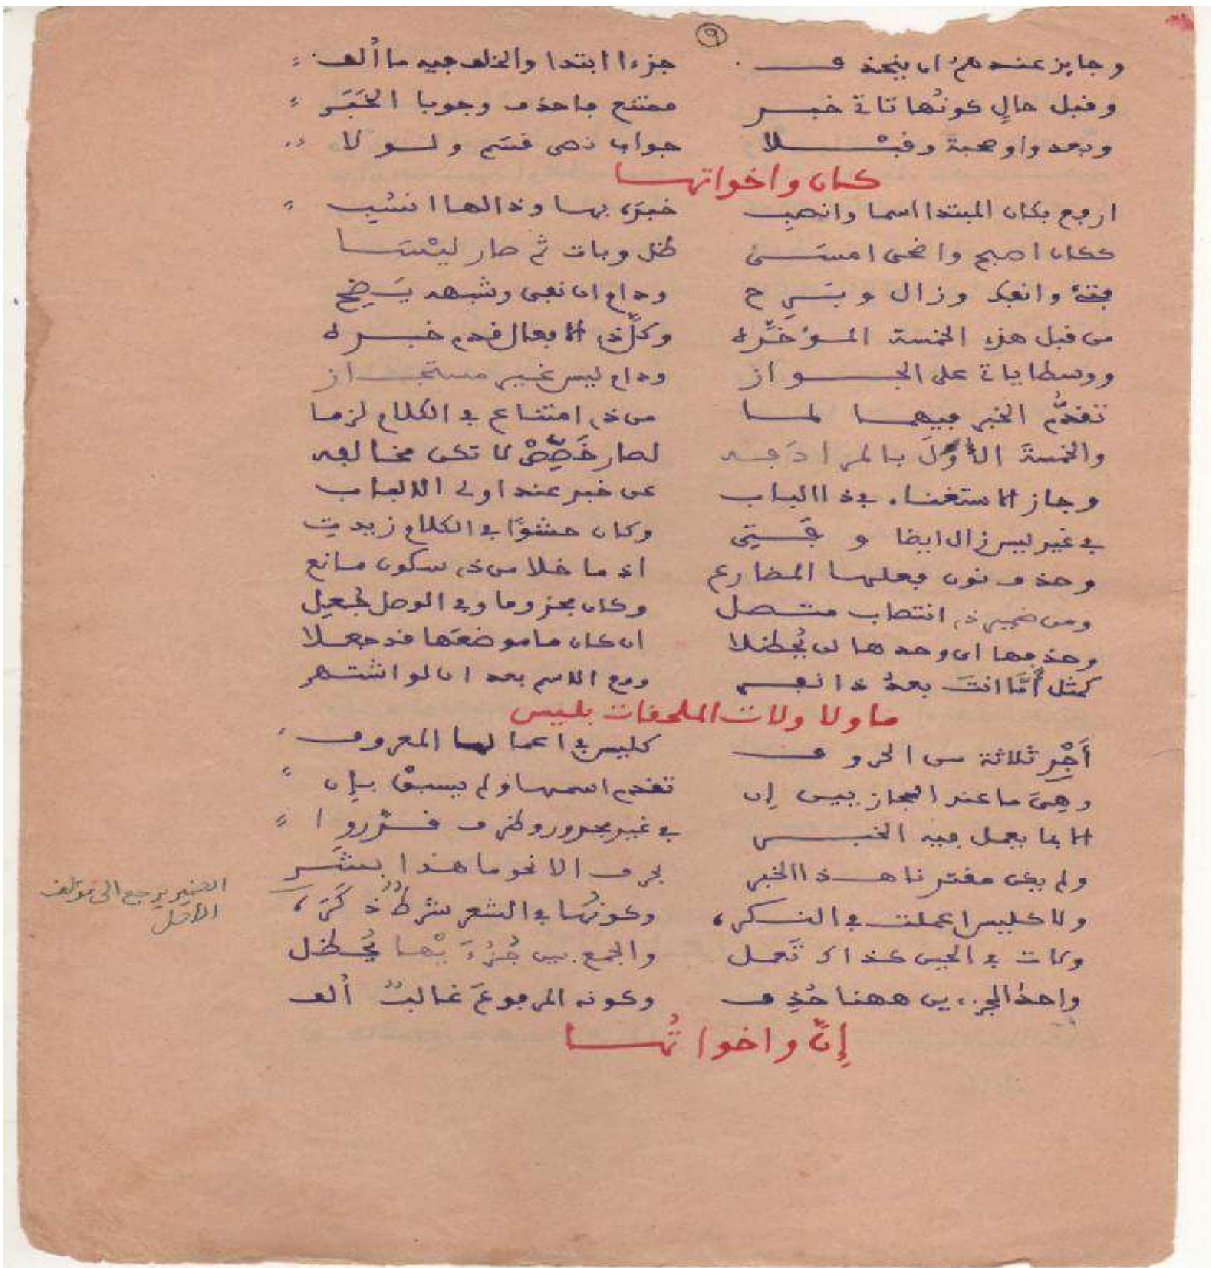 ٩
وجايز عندهم ان ينحذف جزءا ابتدا والخلف فيه ما ألف
وقبل حال كونها تاتي خبر ممتنع فاحذف وجوبا الخبر
وبعد واو صحبة وقبلا جواب نص قسم ولولا
كان واخواتها
ارفع بكان المبتدا اسما وانصب خبره بها وذا لها انسب
ككان اصبح واضحى امسى ظل وبات ثم صار ليسا
فتئ وانفك وزال وبرح ودام ان نفي وشبهه يضح
من قبل هذه الخمسة المؤخره وكل ذي الافعال قدم خبره
ووسطا ياتي على الجواز ودام ليس غير مستجاز
تقدم الخبر فيهما لما من ذي امتناع في الكلام لزما
والخمسة الأول بالمرادفه لصار خصص لا تكن مخالفه
وجاز الاستغناء في ذا الباب عن خبر عند اولي الالباب
في غير ليس زال ايضا وفتي وكان حشوا في الكلام زيدت
وحذف نون فعلها المضارع اذ ما خلا من ذي سكون مانع
ومن ضمير ذي انتصاب متصل وكان مجزوما وفي الوصل جعل
وحذفها ان وحدها لن يحظلا ان كان ما موضعها قد جعلا
كمثل أمّا انت بعدُ ذا نفر ومع الاسم بعد ان لو اشتهر
ما ولا ولات الملحقات بليس
أجر ثلاثة من الحروف كليس في اعمالها المعروف
وهي ما عند الحجاز بين إن تقدم اسمها ولم يسبق بإن
الا بما يعمل فيه الخبر في غير مجرور وظرف قرروا
ولم يكن مقترنا هذا الخبر بحرف الا نحو ما هذا بشر
ولا كليس اعملت في النكره وكونها في الشعر شرط ذكره
ولات في الحين كذاك تعمل والجمع بين جزءيها يحظل
واحد الجزءين ههنا حذف وكونه المرفوع غالبا ألف
إنّ واخواتها
الضمير يرجع الى مؤلف
الأصل